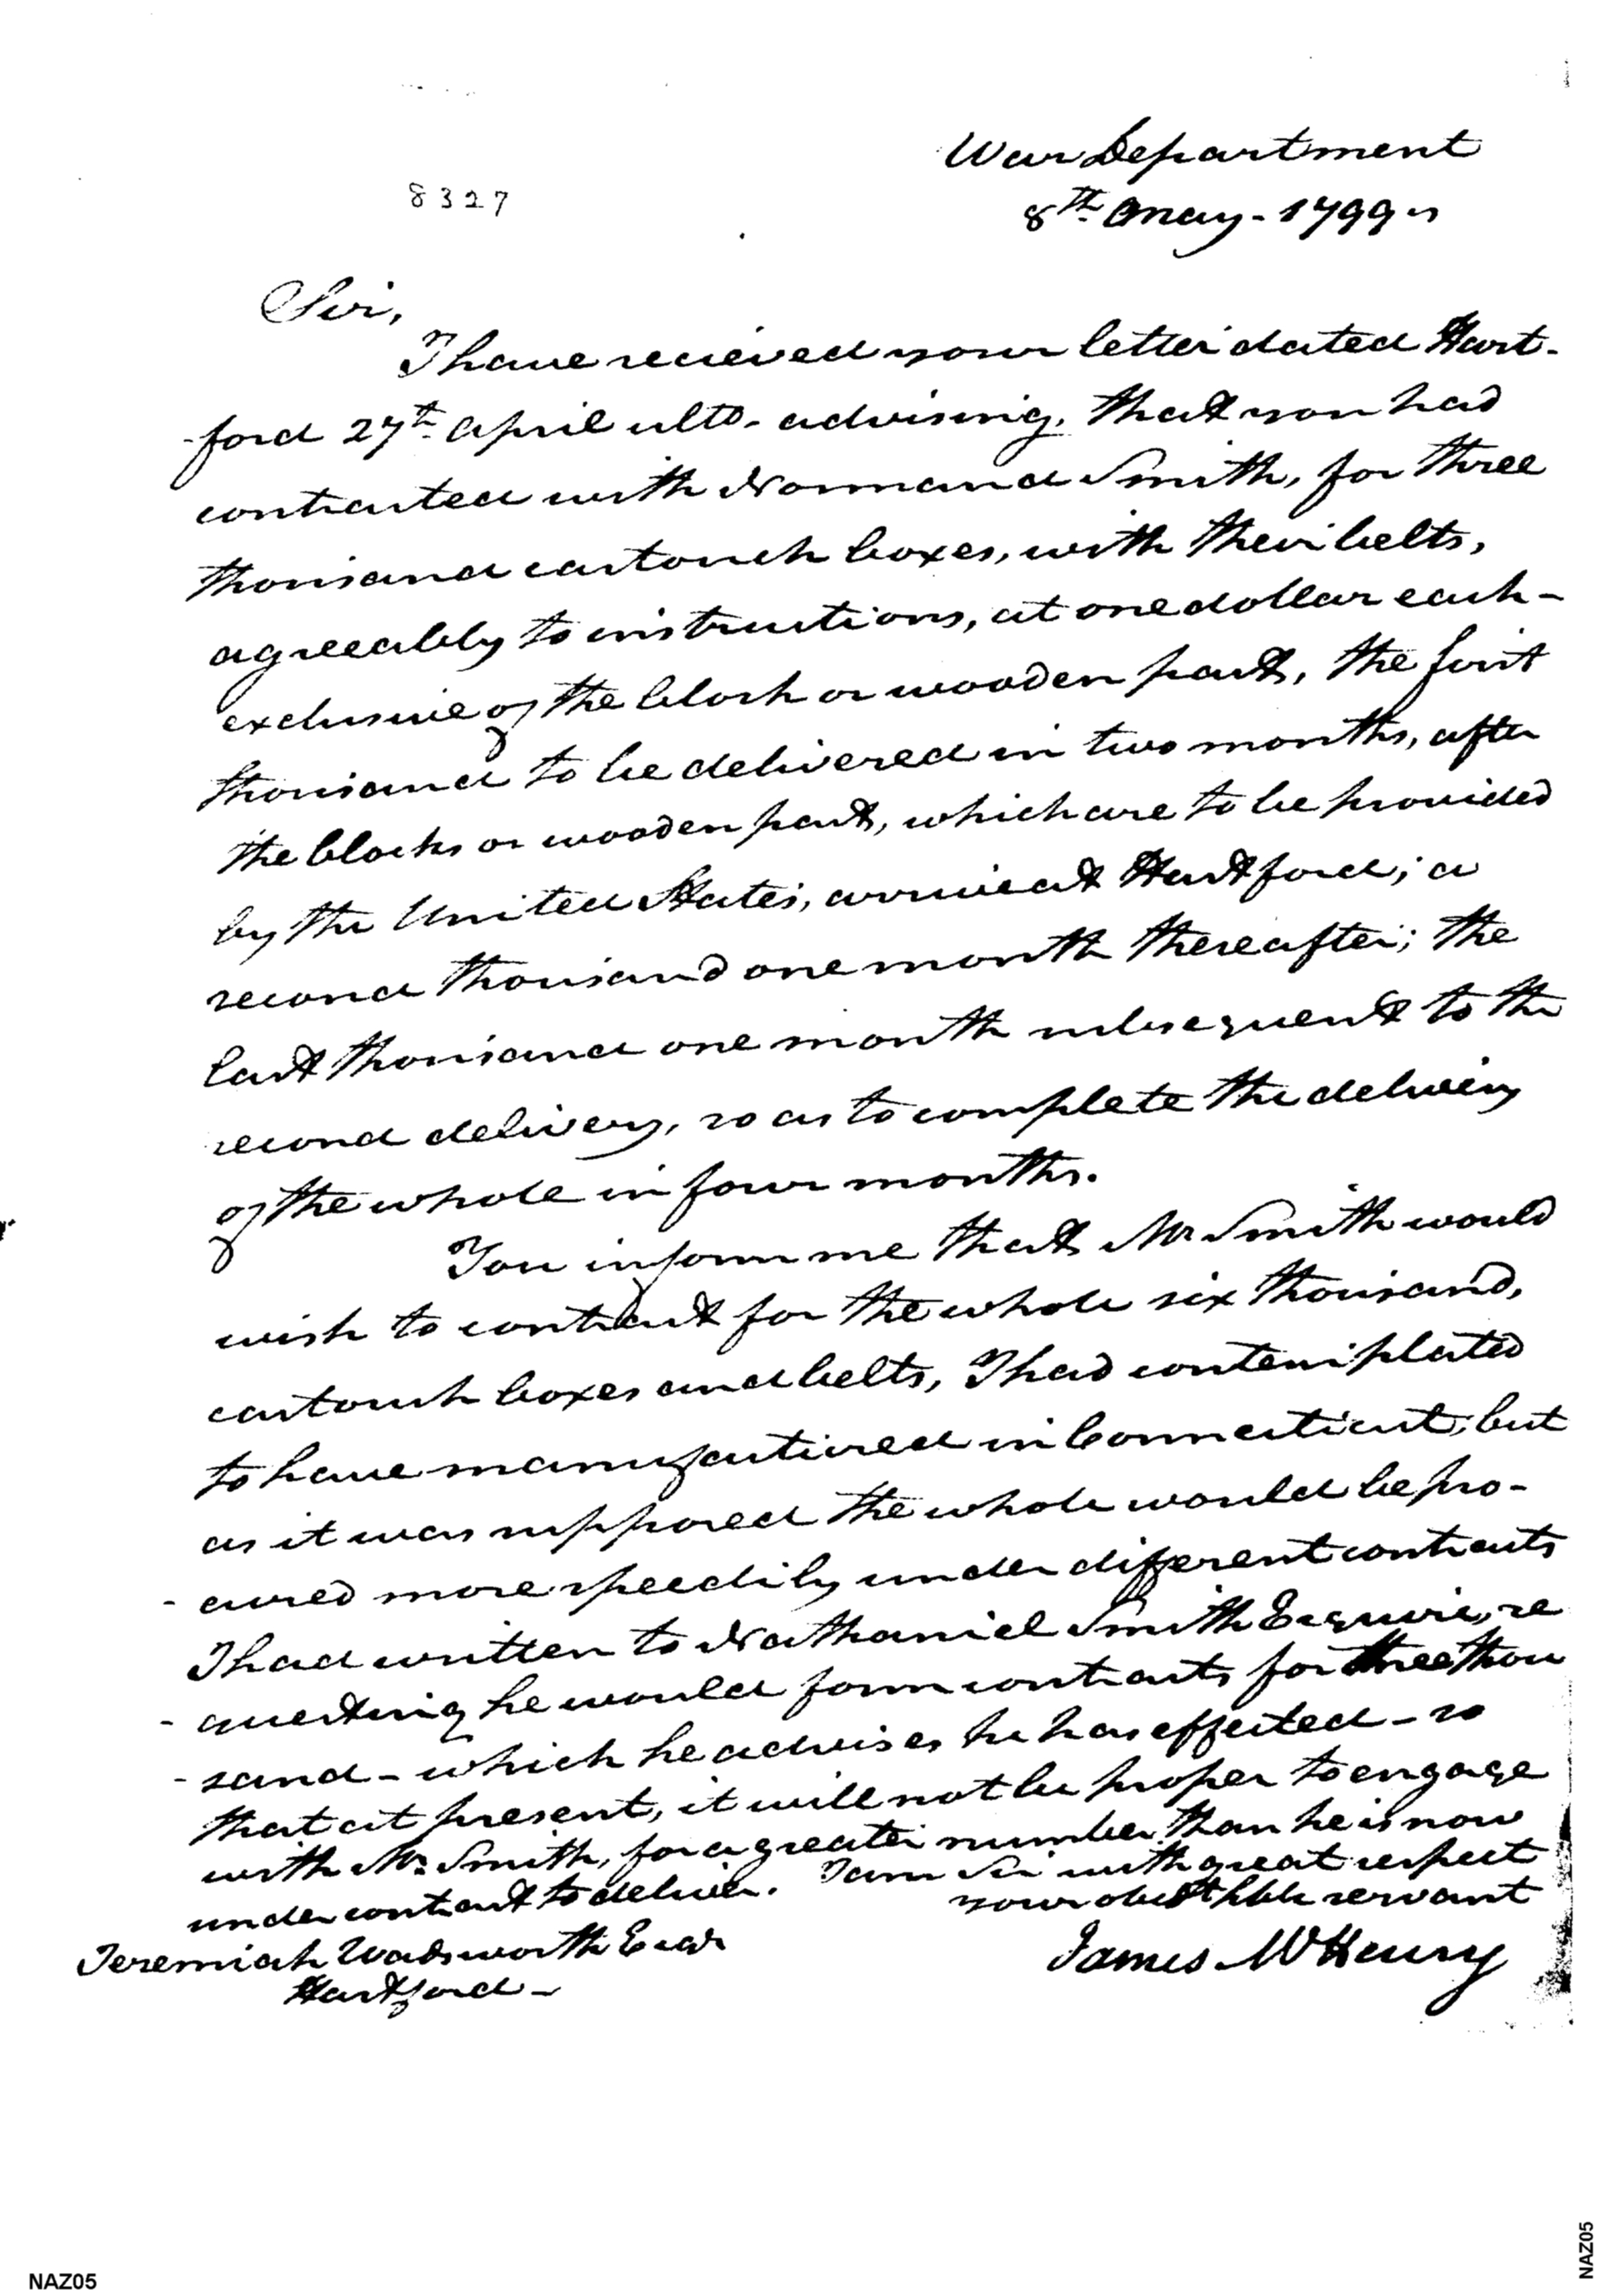 War Department
8327
8th May - 1799
Sir,
I have recieved your letter dated Hart-
-ford 27th April ulto. advising, that you had
contracted with Normand Smith, for three
thousand cartouch boxes, with their belts,
agreeably to instructions, at one dollar each -
exclusive of the block or wooden part, the first
thousand to be delivered in two months, after
the blocks or wooden part, which are to be provided
by the United States, arrive at Hartford; a
second thousand one month thereafter; the
last thousand one month subsequent to the
second delivery, so as to complete the delivery
of the whole in four months.
You inform me that Mr Smith would
wish to contract for the whole six thousand,
cartouch boxes and belts, I had contemplated
to have manufactured in Connecticut; but
as it was supposed the whole would be pro-
-cured more speedily under different contracts
I had written to Nathaniel Smith Esquire, re
-questing he would form contracts for three thou
-sand - which he advises he has effected - so
that at present, it will not be proper to engage
with Mr Smith, for a greater number than he is now
under contract to deliver. I am Sir with great respect
your obedt hble servant
Jeremiah Wadsworth Esqr
James McHenry
Hartford -
NAZ05
NAZ05